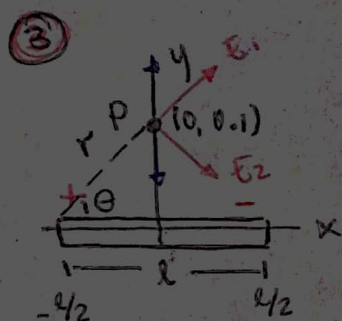 3
y E1
P (0, 0.1)
r
E2
+ θ -
x
l
-l/2 l/2